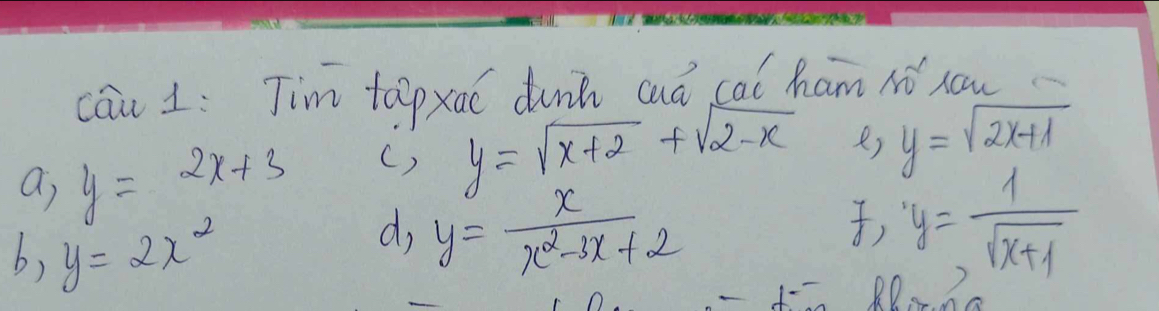 Câu 1: Tìm tập xác định của các hàm số sau
a, y = 2x+3 c, y = √(x+2) + √(2-x) e, y = √(2x+1)
b, y = 2x² d, y = x/(x²-3x+2) f, y = 1/√(x+1)
tìm khoảng